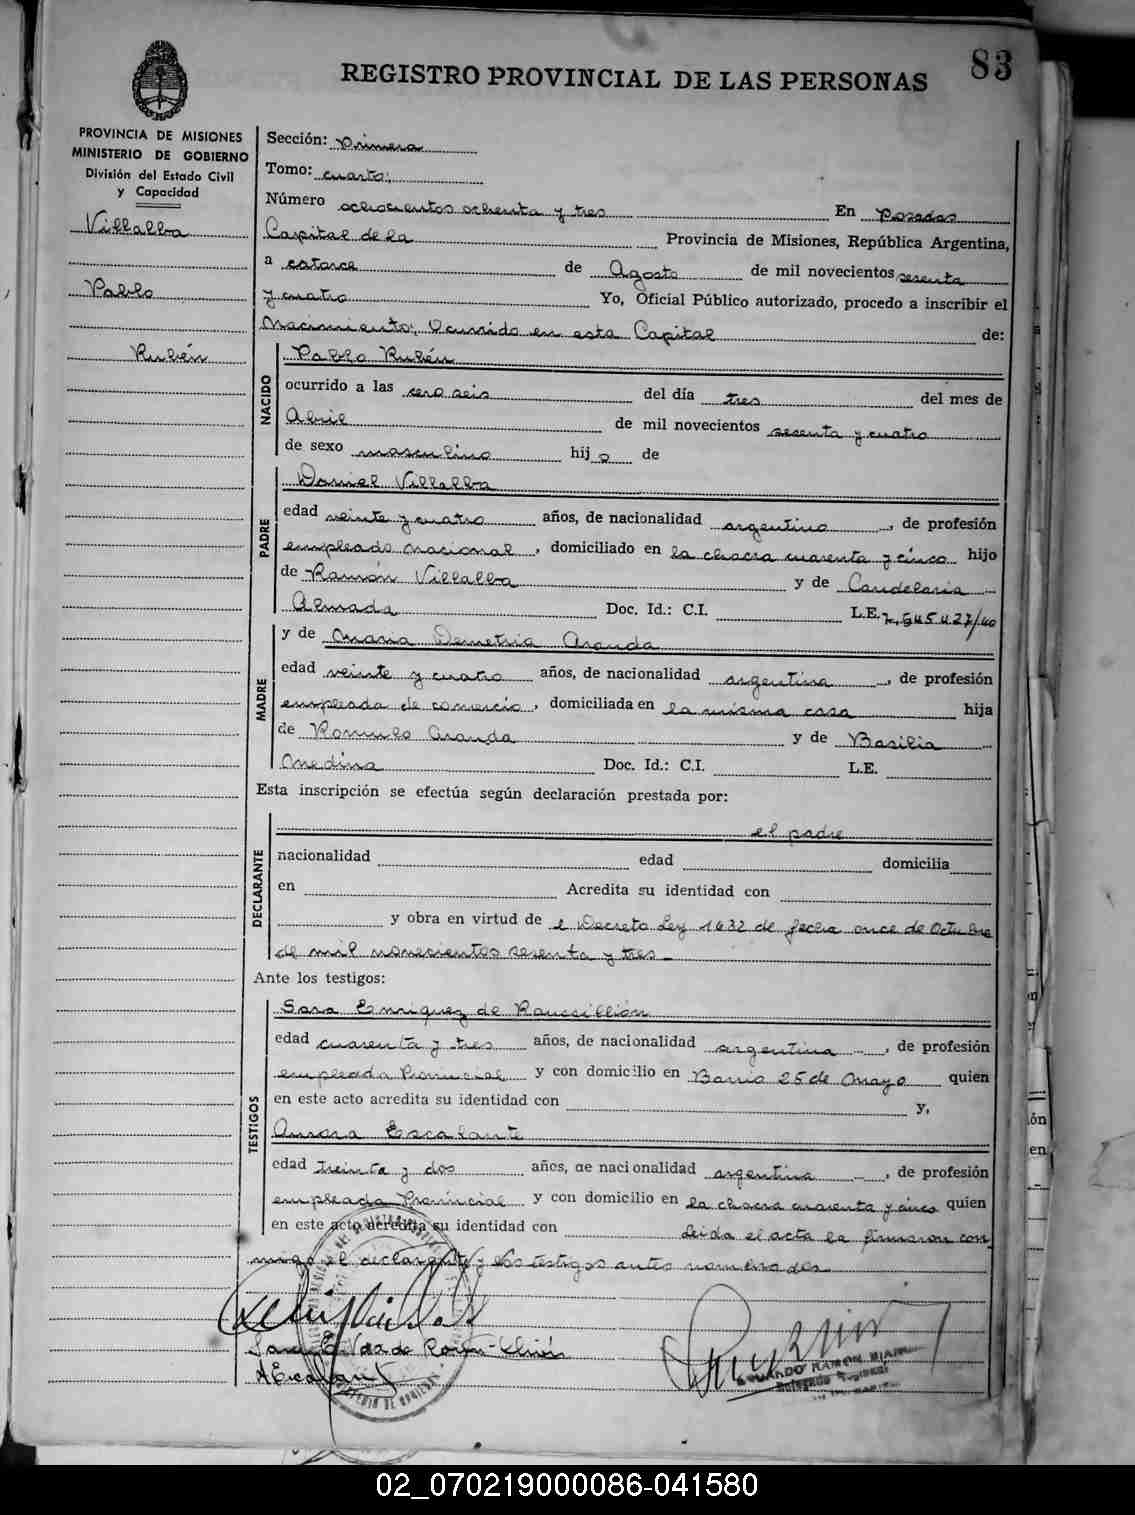 83
REGISTRO PROVINCIAL DE LAS PERSONAS
PROVINCIA DE MISIONES
MINISTERIO DE GOBIERNO
División del Estado Civil
y Capacidad
Villalba
Pablo
Rubén
Sección: Primera
Tomo: cuarto.
Número ochocientos ochenta y tres En Posadas
Capital de la Provincia de Misiones, República Argentina,
a catorce de Agosto de mil novecientos sesenta
y cuatro Yo, Oficial Público autorizado, procedo a inscribir el
Nacimiento: Ocurrido en esta Capital de:
NACIDO
Pablo Rubén
ocurrido a las cero seis del día tres del mes de
Abril de mil novecientos sesenta y cuatro
de sexo masculino hijo de
PADRE
Daniel Villalba
edad veinte y cuatro años, de nacionalidad argentino, de profesión
empleado nacional, domiciliado en la chacra cuarenta y cinco hijo
de Ramón Villalba y de Candelaria
Almada Doc. Id.: C.I. L.E. 7.545.427/40
MADRE
y de Maria Demetria Aranda
edad veinte y cuatro años, de nacionalidad argentina, de profesión
empleada de comercio, domiciliada en la misma casa hija
de Romulo Aranda y de Basilia
Medina Doc. Id.: C.I. L.E.
Esta inscripción se efectúa según declaración prestada por:
DECLARANTE
el padre
nacionalidad edad domicilia
en Acredita su identidad con
y obra en virtud de el Decreto Ley 1632 de fecha once de Octubre
de mil novecientos sesenta y tres
Ante los testigos:
TESTIGOS
Sara Enriquez de Roussillión
edad cuarenta y tres años, de nacionalidad argentina, de profesión
empleada Provincial y con domicilio en Barrio 25 de Mayo quien
en este acto acredita su identidad con y,
Aurora Escalante
edad treinta y dos años, de nacionalidad argentina, de profesión
empleada Provincial y con domicilio en la chacra cuarenta y cinco quien
en este acto acredita su identidad con Leida el acta la firmaron con
migo el declarante y los testigos antes nombrados
A Escalante
RAMON
02_070219000086-041580